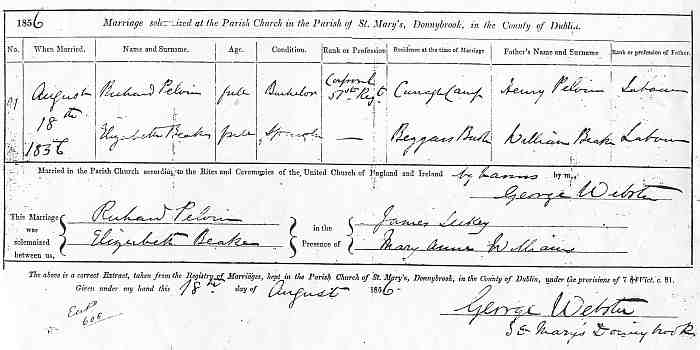 1856 Marriage solemnized at the Parish Church in the Parish of St. Mary's, Donnybrook, in the County of Dublin.
No. When Married. Name and Surname. Age. Condition. Rank or Profession Residence at the time of Marriage Father's Name and Surname. Rank or profession of Father.
91 August 18th 1856 Richard Pelvin full Bachelor Corporal Regt. Curragh Camp Henry Pelvin Labour
Elizabeth Beake full Spinster — Beggars Bush William Beake Labour
Married in the Parish Church according to the Rites and Ceremonies of the United Church of England and Ireland by banns by me,
George Webster
This Marriage was solemnized between us, { Richard Pelvin } in the Presence of { James Leekey
Elizabeth Beake Mary Anne Williams
The above is a correct Extract, taken from the Registry of Marriages, kept in the Parish Church of St. Mary's, Donnybrook, in the County of Dublin, under the provisions of 7 & 8 Vict. c. 81.
Given under my hand this 18th day of August 1856.
George Webster
St Mary's Donnybrook